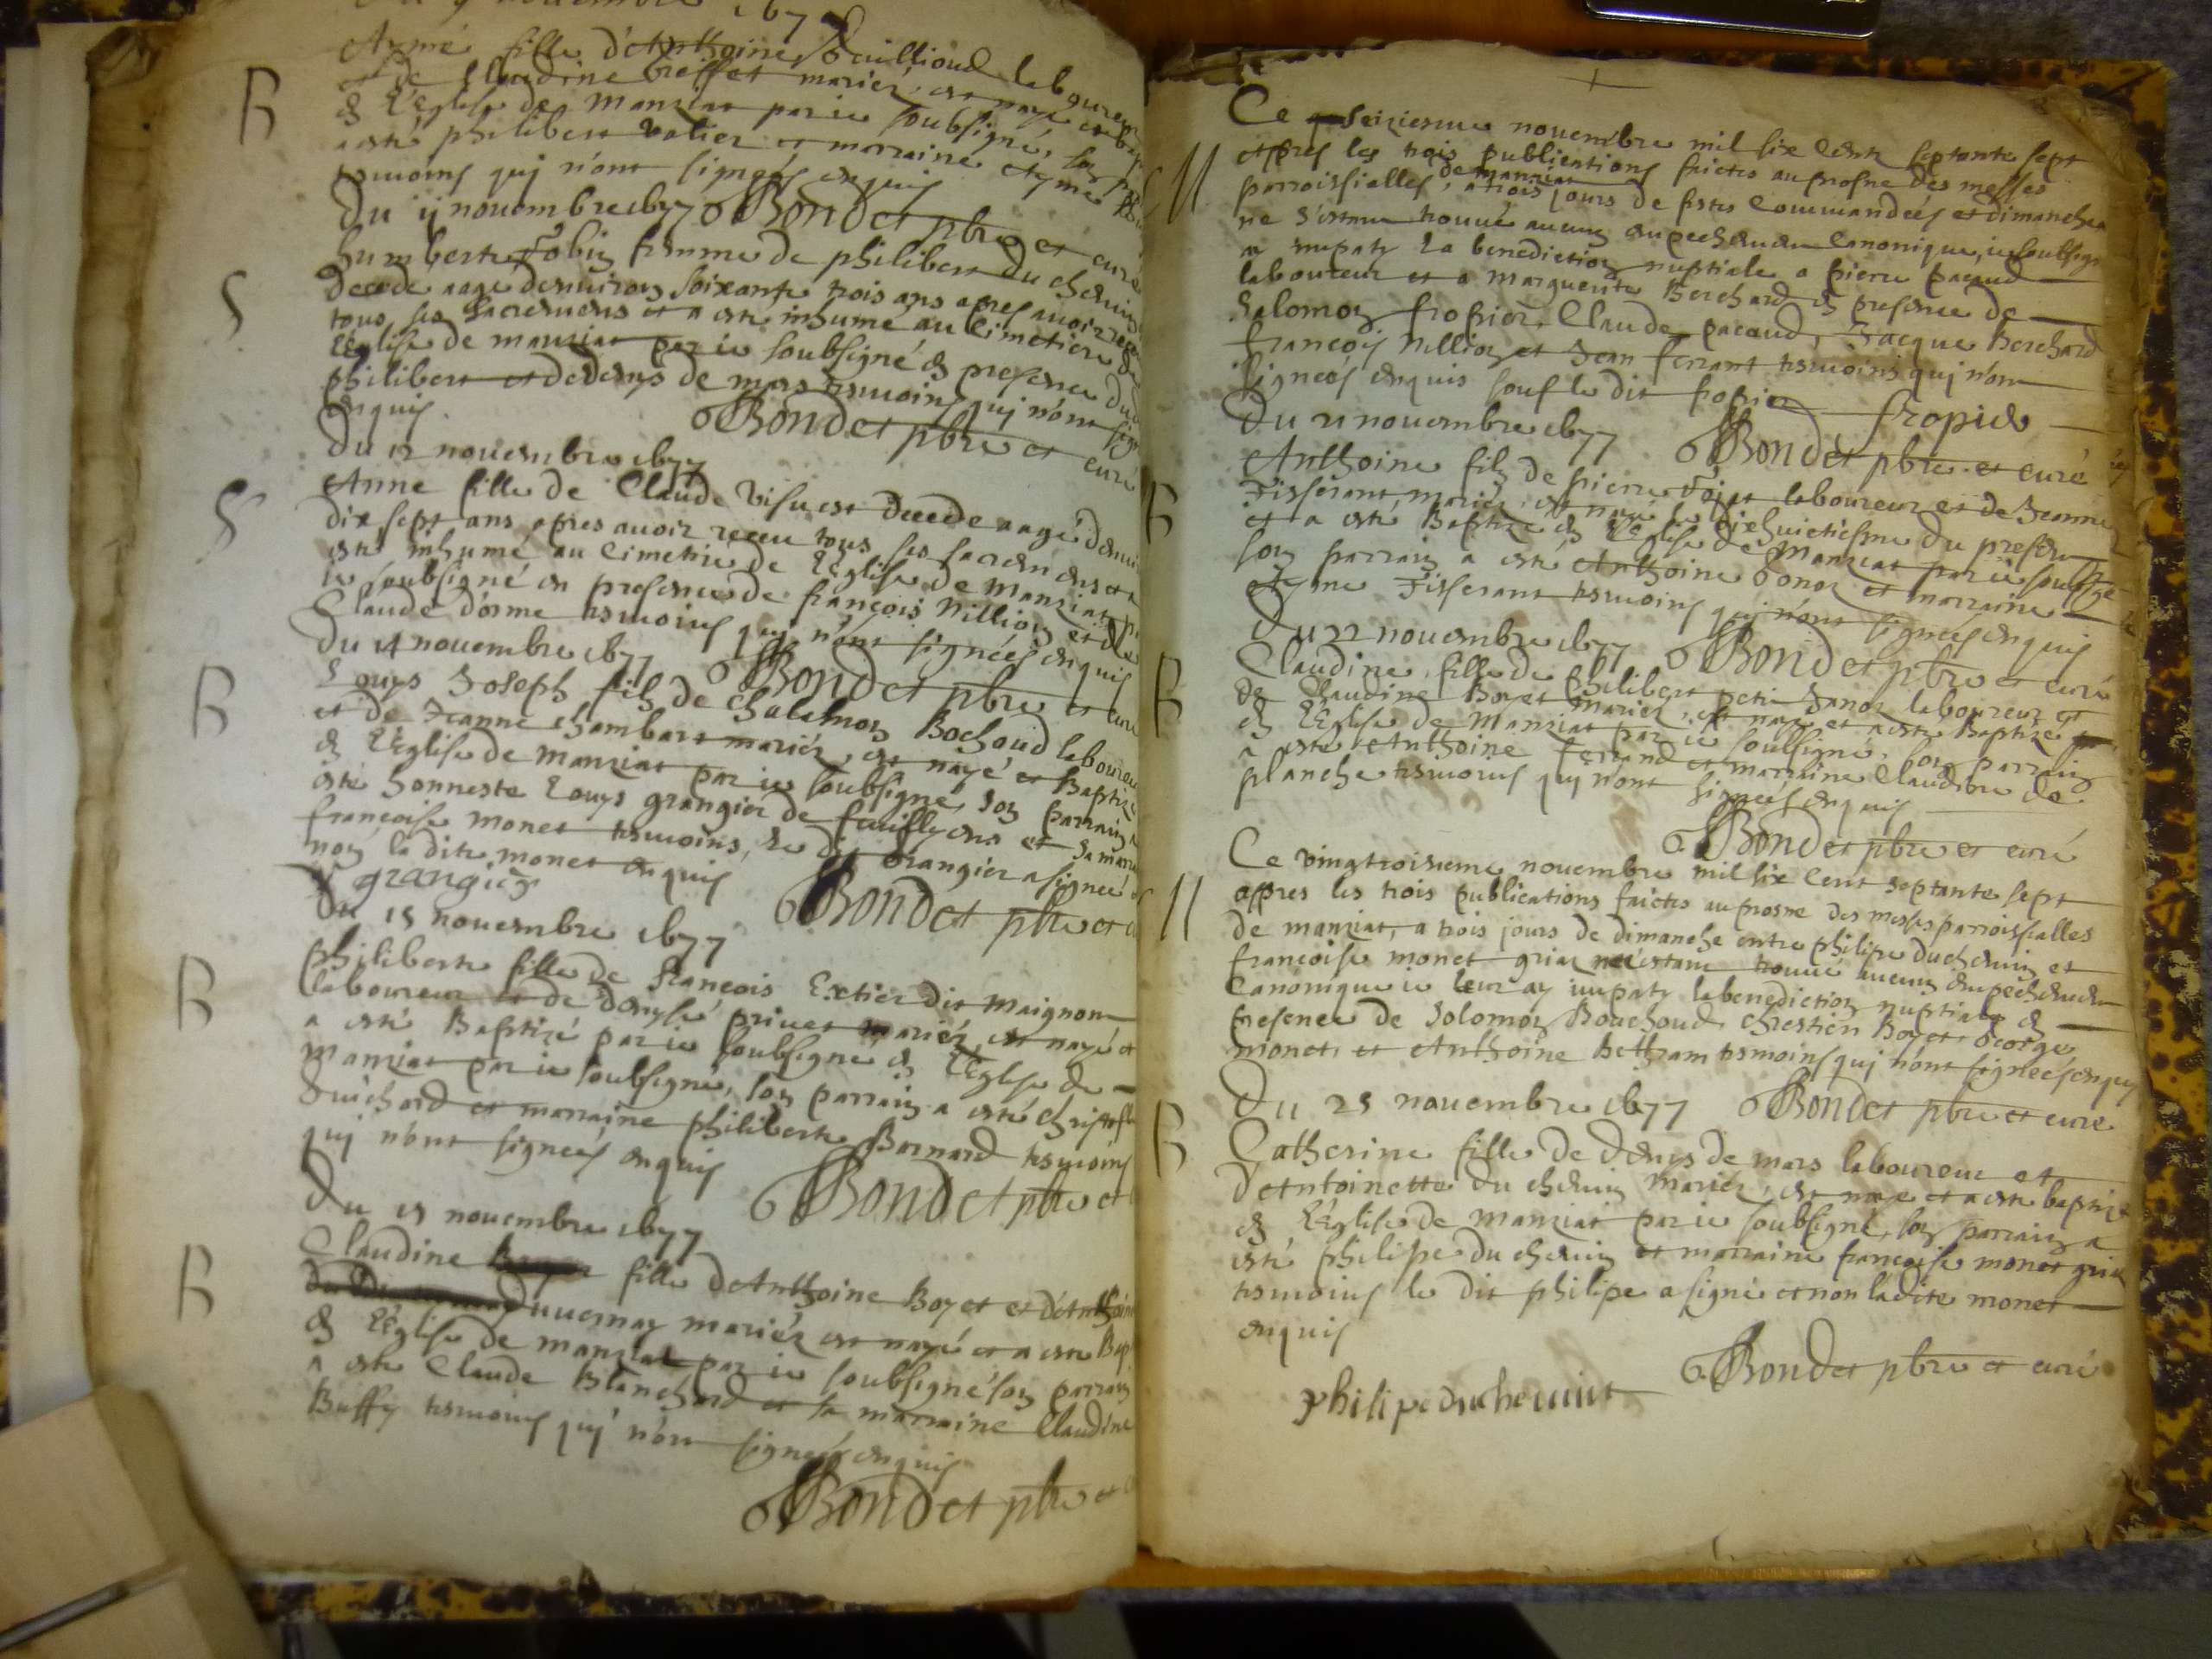 Du 9 novembre 1677
Aymé fille d'Anthoine laboureur
et de Claudine mariez, est nayé et
B
en l'Eglise de Manziat par ie soubsigné, son
a esté philibert Vatier et marraine Aymé
tesmoins qui n'ont signées enquis
Du 11 novembre 1677 Bondet pbre et curé
humberte Fobin femme de philibert du chemin
S
decede aage d'environ soixante trois ans apres avoir receu
tous ses sacremens et a esté inhumé au Cimetiere de
l'Eglise de manziat par ie soubsigné en presence du
philibert et de denys de mars tesmoins qui n'ont signé
enquis Bondet pbre et curé
Du 12 novembre 1677
S
Anne fille de Claude Visu est decede aagé d'envi
dix sept ans apres avoir receu tous ses sacremens et a
esté inhumé au Cimetiere de l'Eglise de Manziat
ie soubsigné en presence de françois Nillion et de
Claude dorme tesmoins qui n'ont signées enquis
Du 14 novembre 1677 Bondet pbre et curé
B
Louys Joseph filz de Chalamon Bochoud laboureur
et de Jeanne Chambart mariéz, est nayé et Baptizé
en l'Eglise de Manziat par ie soubsigné, son parrain a
esté honneste Louys grangier de et sa marr
françoise monet tesmoins, le dit Grangier a signeé
non la dite monet enquis
grangier Bondet pbre et
Du 15 novembre 1677
B
philiberte fille de françois Extier dit Maignon
laboureur et de denyse privet mariéz, est nayé et
a esté Baptizé par ie soubsigné en l'Eglise de
Manziat par ie soubsigné, son parrain a esté christofle
Guichard et marraine philiberte Bernard tesmoins
qui n'ont signeés enquis Bondet pbre et
Du 15 novembre 1677
B
Claudine fille d'Anthoine Boyet et d'Anthoine
duvernay mariéz est nayé et a esté Bap
en l'Eglise de manziat par ie soubsigné son parrain
a esté Claude Blanchard et sa marraine Claudine
Buffy tesmoins qui n'ont signeés enquis
Bondet pbre et
Ce seiziesme novembre mil six Cents septante sept
M
appres les trois publications faictes au prosne des messes
de manziat
parroissielles, a trois jours de festes Commandeés et dimanches
ne s'estant trouvé aucun empechement Canonique, ie soubsigné
ay imparty la benediction nuptiale a pierre pacaud
laboureur et a Marguerite Berchard en presence de
Salomon fropier, Claude pacaud, Jacque Berchard
françois Nillion et Jean ferrant tesmoins qui n'ont
signeés enquis souf le dit fropier fropier
Du 21 novembre 1677 Bondet pbre et curé
B
Anthoine filz de pierre Fojat laboureur et de Jeanne
Tisserant mariéz, est nayé le dixhuictiesme du present
et a esté Baptizé en l'Eglise de Manziat par ie soubsigné
son parrain a esté Anthoine Gonon et marraine
Ayme Tisserant tesmoins qui n'ont signeés enquis
Du 22 novembre 1677 Bondet pbre et curé
B
Claudine, fille de philibert petit Janon laboureur et
de Claudine Boyet mariéz, est nayé et a esté Baptizé
en l'Eglise de Manziat par ie soubsigné, son parrain
a esté Anthoine ferrand et marraine Claudine de
planche tesmoins qui n'ont signeés enquis
Bondet pbre et curé
Ce vingtroisieme novembre mil six Cent septante sept
M
appres les trois publications faictes au prosne des messes parroissialles
de manziat, a trois jours de dimanche entre philipe duchemin et
françoise monet griat ne s'estant trouvé aucun empechement
Canonique ie leur ay imparty la benediction nuptiale en
presence de Solomon Bouchoud chrestien Boyet George
monet, et Anthoine Bettram tesmoins qui n'ont signeés enquis
Du 25 novembre 1677 Bondet pbre et curé
B
Catherine fille de denys de mars laboureur et
d'Antoinette du chemin mariéz, est nayé et a esté baptizé
en l'Eglise de Manziat par ie soubsigné, son parrain a
esté philipe du chemin et marraine françoise monet griat
tesmoins le dit philipe a signé et non ladite monet
enquis
Bondet pbre et curé
philipe duchemint